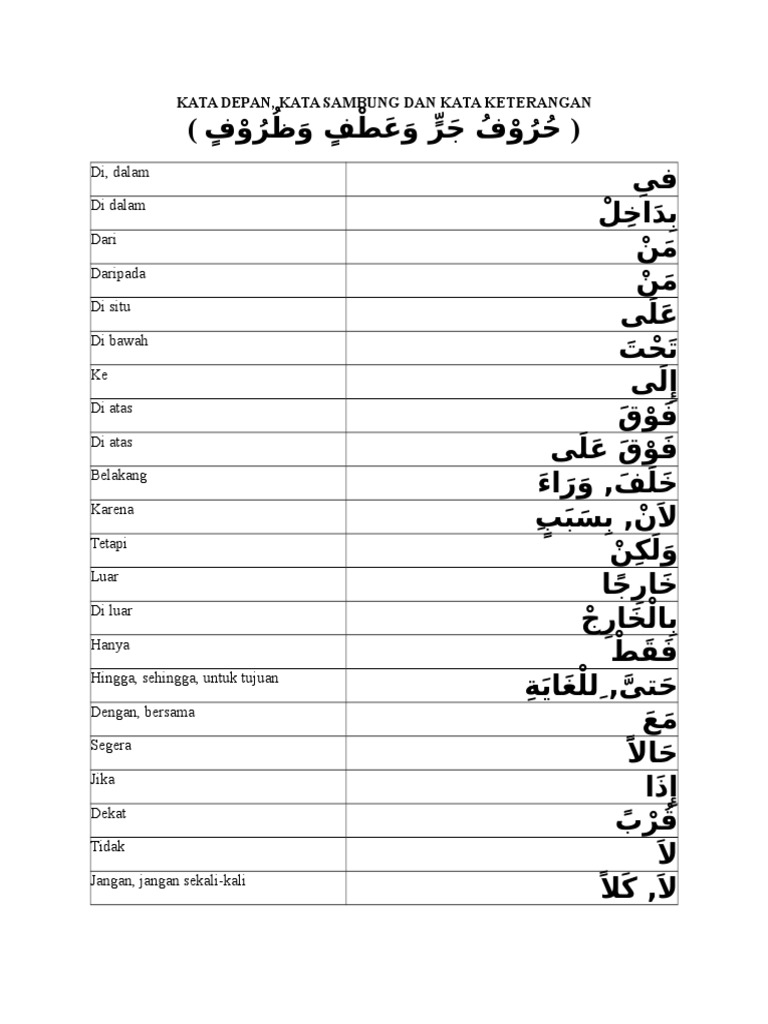 KATA DEPAN, KATA SAMBUNG DAN KATA KETERANGAN
( حُرُوْفُ جَرٍّ وَعَطْفٍ وَظُرُوْفٍ )
Di, dalam فى
Di dalam بِدَاخِلْ
Dari مَنْ
Daripada مَنْ
Di situ عَلَى
Di bawah تَحْتَ
Ke إِلَى
Di atas فَوْقَ
Di atas فَوْقَ عَلَى
Belakang خَلَفَ, وَرَاءَ
Karena لاَنْ, بِسَبَبٍ
Tetapi وَلَكِنْ
Luar خَارِجًا
Di luar بِالْخَارِجْ
Hanya فَقَطْ
Hingga, sehingga, untuk tujuan حَتىَّ, ِللْغَايَةِ
Dengan, bersama مَعَ
Segera حَالاً
Jika إِذَا
Dekat قُرْبً
Tidak لاَ
Jangan, jangan sekali-kali لاَ, كَلاً